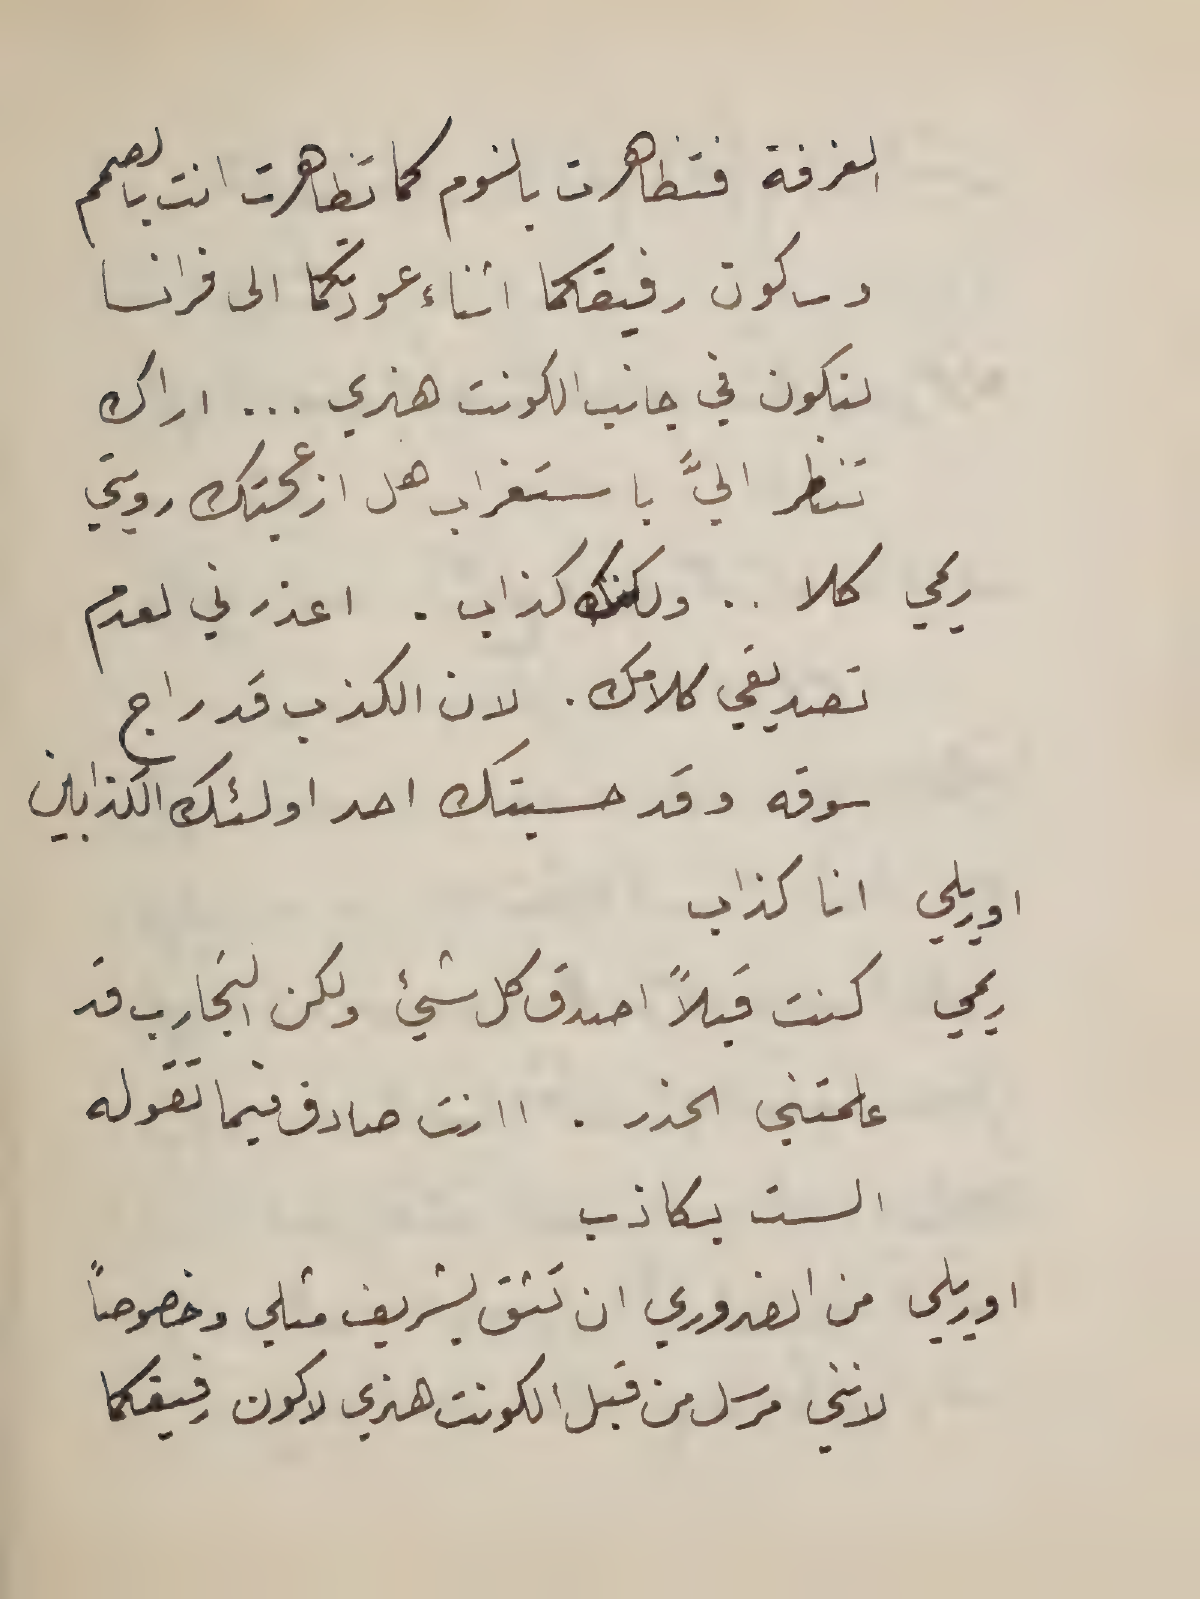 الغرفة فتظاهرت بالنوم كما تظاهرت انت بالصمم
وساكون رفيقكما اثناء عودتكما الى فرانسا
لنكون في جانب الكونت هنري ... اراك
تنظر اليَّ باستغراب هل ازعجتك رويتي
ريمي كلا .. ولكنك كذاب . اعذرني لعدم
تصديقي كلامك . لان الكذب قد راج
سوقه وقد حسبتك احد اولئك الكذابين
اوريلي انا كذاب
ريمي كنت قبلاً اصدق كل شيئ ولكن التجارب قد
علمتني الحذر . اانت صادق فيما تقوله
الست بكاذب
اوريلي من الضروري ان تثق بشريف مثلي وخصوصاً
لانني مرسل من قبل الكونت هنري لاكون رفيقكما